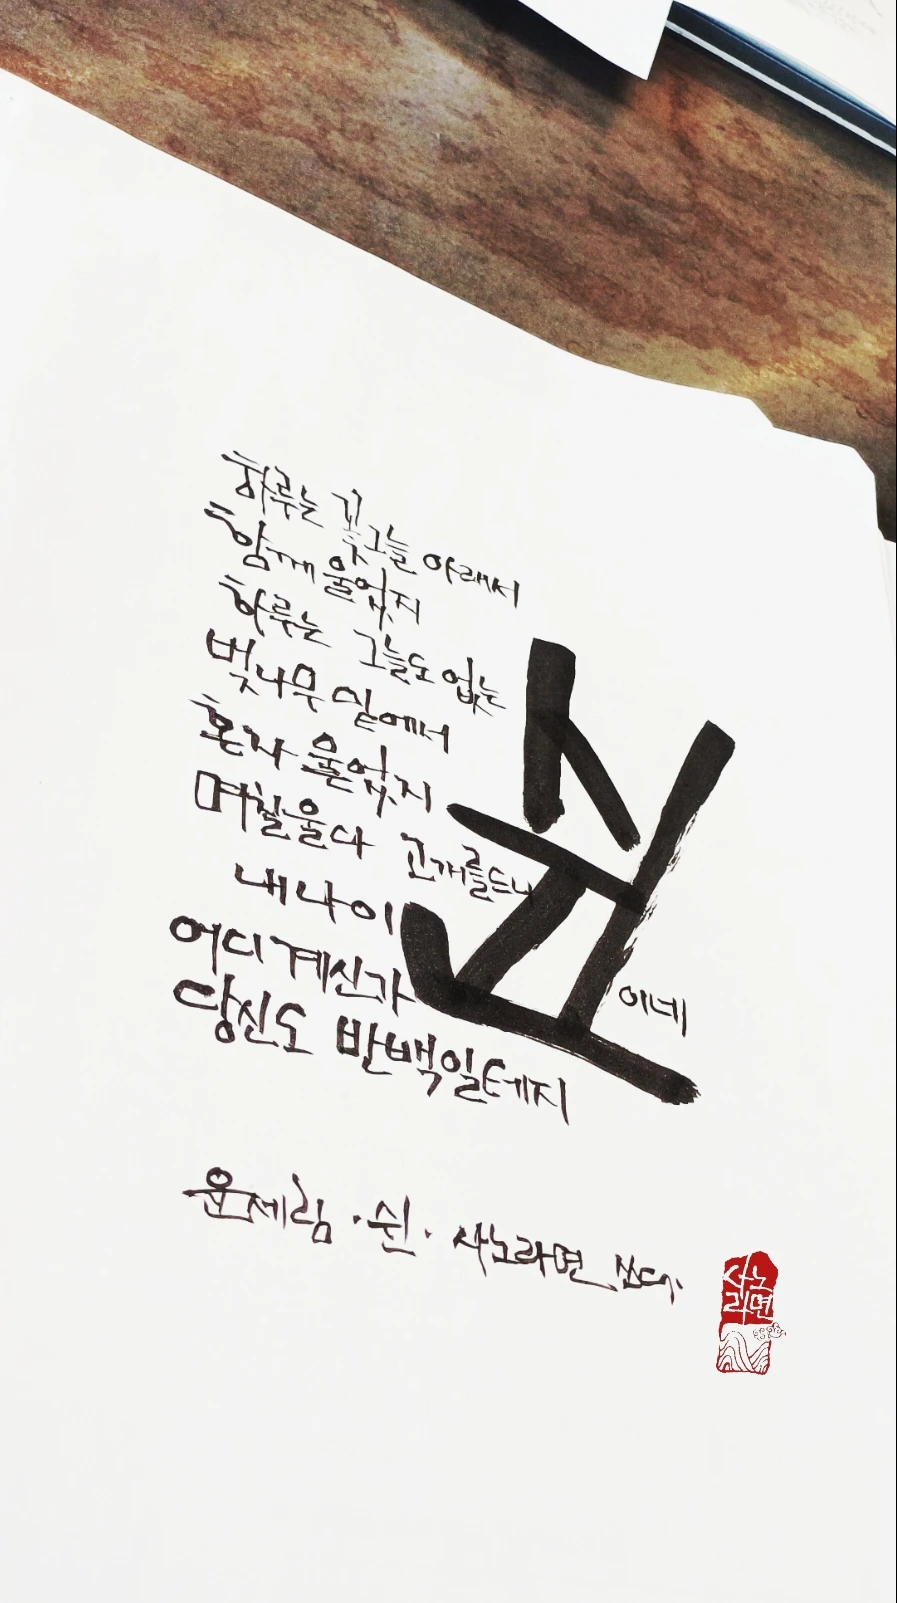 하루는 꽃그늘 아래서
함께 울었지
하루는 그늘도 없는
벚나무 밑에서
혼자 울었지
며칠 울다 고개를 드니
내 나이 쉰이네
어디 계신가
당신도 반백일테지
윤제림 · 쉰 · 사노라면 쓰다.
사노
라면